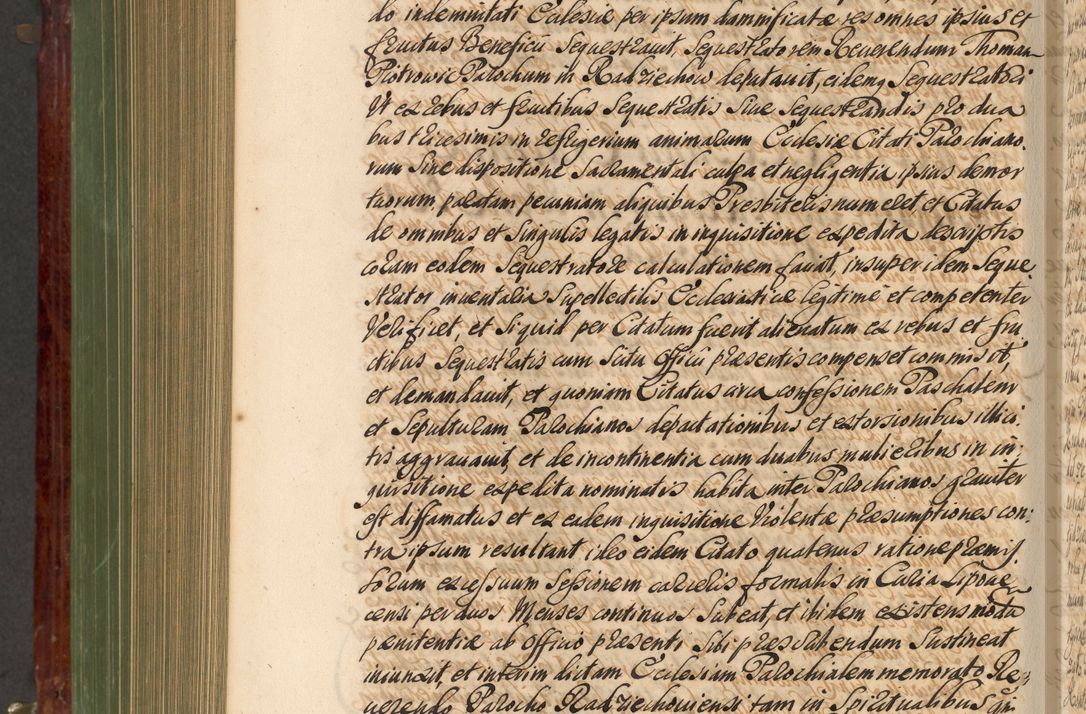 do indemnitati Ecclesiæ per ipsum damnificatæ res omnes ipsius et
fructus Beneficii Sequestrauit, Sequestratorem Reuerendum Thomam
Piotrowic Parochum in Radziechow deputauit, eidemq Sequestratori
Vt ex rebus et fructibus Sequestratis Siue Sequestrandis pro dua
bus tricesimis in refrigerium animarum Ecclesiæ Citati Parochiano,
rum Sine dispositione Sacramentali culpa et negligentia ipsius demor
tuorum, paratam pecuniam aliquibus Presbiteris numeret, et Citatus
de omnibus et Singulis legatis in inquisitione expedita descriptis
coram eodem Sequestratore calculationem faciat, insuper idem Seque
strator inuentaria Supellectilis Ecclesiasticæ legitime et competenter
Verificet, et Siquid per Citatum fuerit alienatum ex rebus et fru
ctibus Sequestratis cum Scitu Officii præsentis compenset commisit,
et demandauit, et quoniam Citatus circa confessionem Paschalem
et Sepulturam Parochianos depactationibus et extorsionibus illici,
tis aggrauauit, et de incontinentia cum duabus mulieribus in in:
quisitione expedita nominatis habita inter Parochianos grauiter
est diffamatus et ex eadem inquisitione Violentæ præsumptiones con:
tra ipsum resultant, ideo eidem Citato quatenus ratione præmis
sorum excessuum Sessionem carceris formalis in Curia Lipouie
censi per duos Menses continuos Subeat, et ibidem existens
penitentiæ ab Officio præsenti Sibi præscribendum Sustineat
iniunxit, et interim dictam Ecclesiam Parochialem memorato Re:
uerendo Parocho Radziechouiensi tam in Spiritualibus